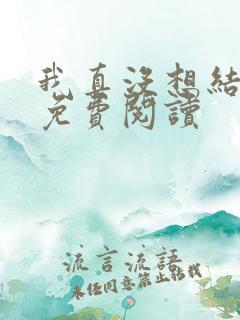 我真沒想結
免費閱讀
流言流語
未任同意禁止轉載